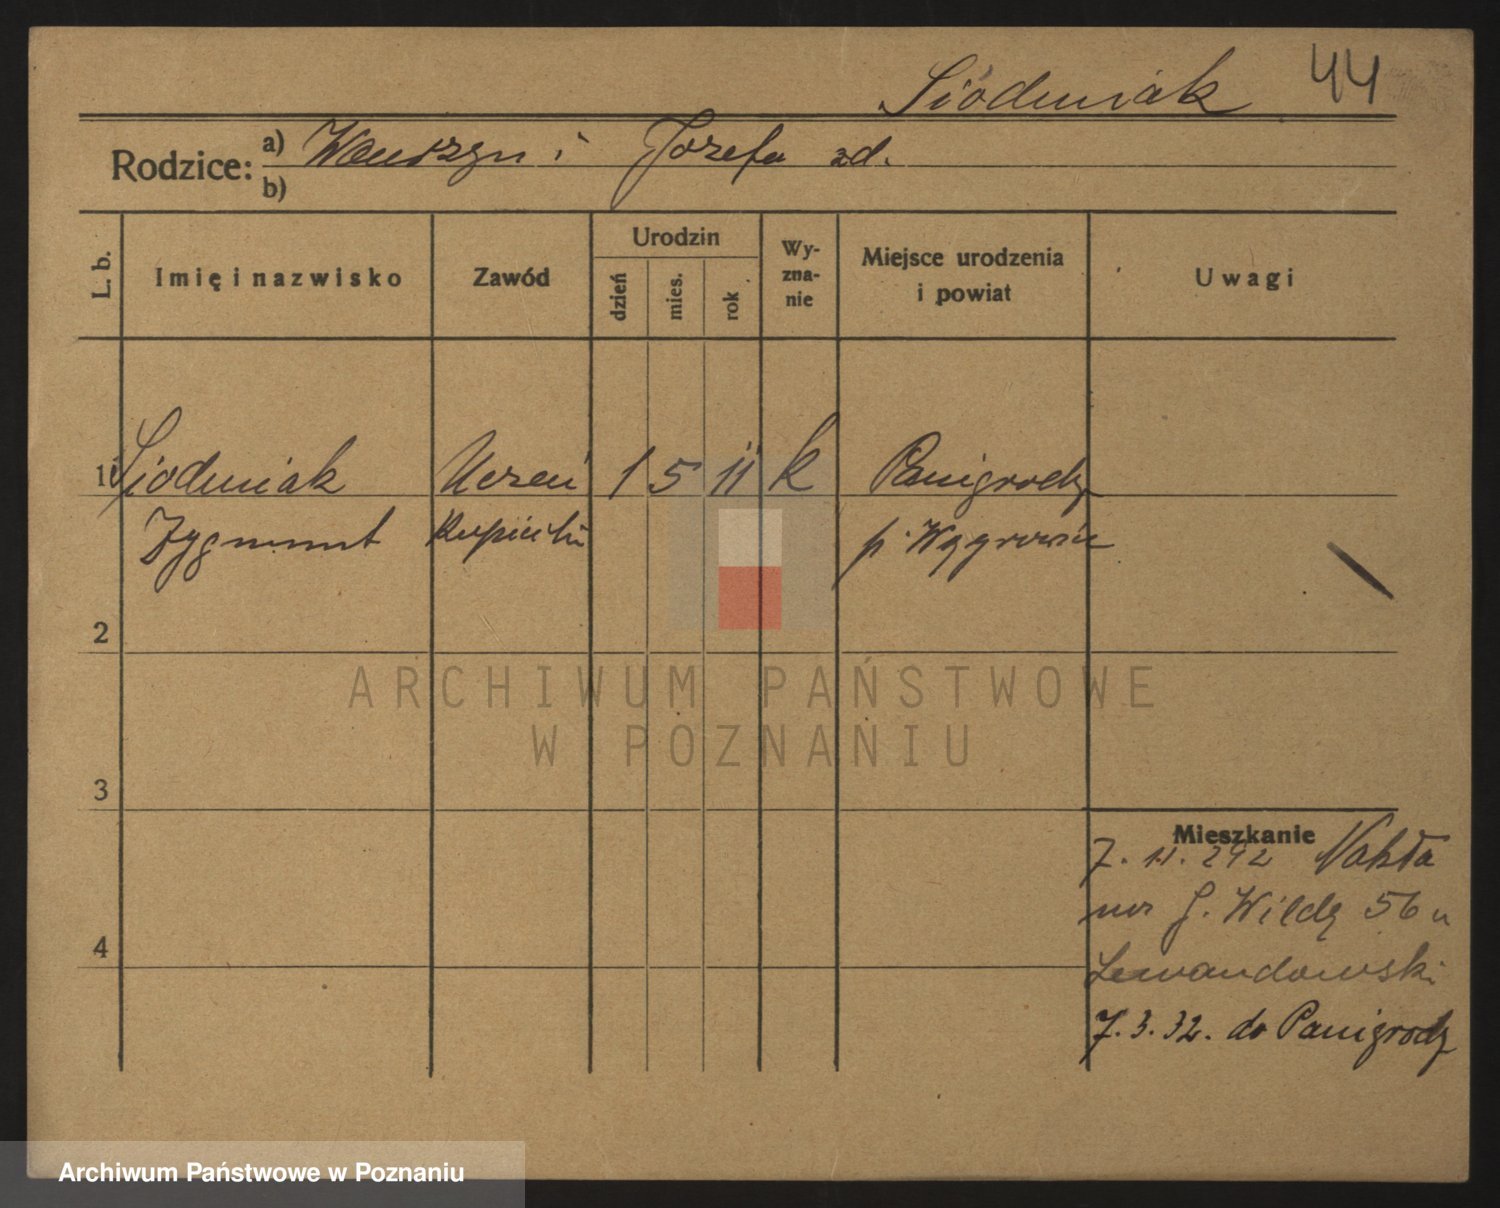 Siódmiak 44
Rodzice: a) Wawrzyn i Józefa zd.
b)
L. b. Imię i nazwisko Zawód Urodzin dzień mies. rok Wy-zna-nie Miejsce urodzenia i powiat Uwagi
1 Siódmiak Uczeń 1 5 11 k Panigrodz
Zygmunt kupiecki p. Wągrowiec
2
3
4
Mieszkanie
7. 11. 292 Nakła
G. Wildy 56 u
Lewandowski
7. 3. 32. do Panigrodz
ARCHIWUM PAŃSTWOWE
W POZNANIU
Archiwum Państwowe w Poznaniu